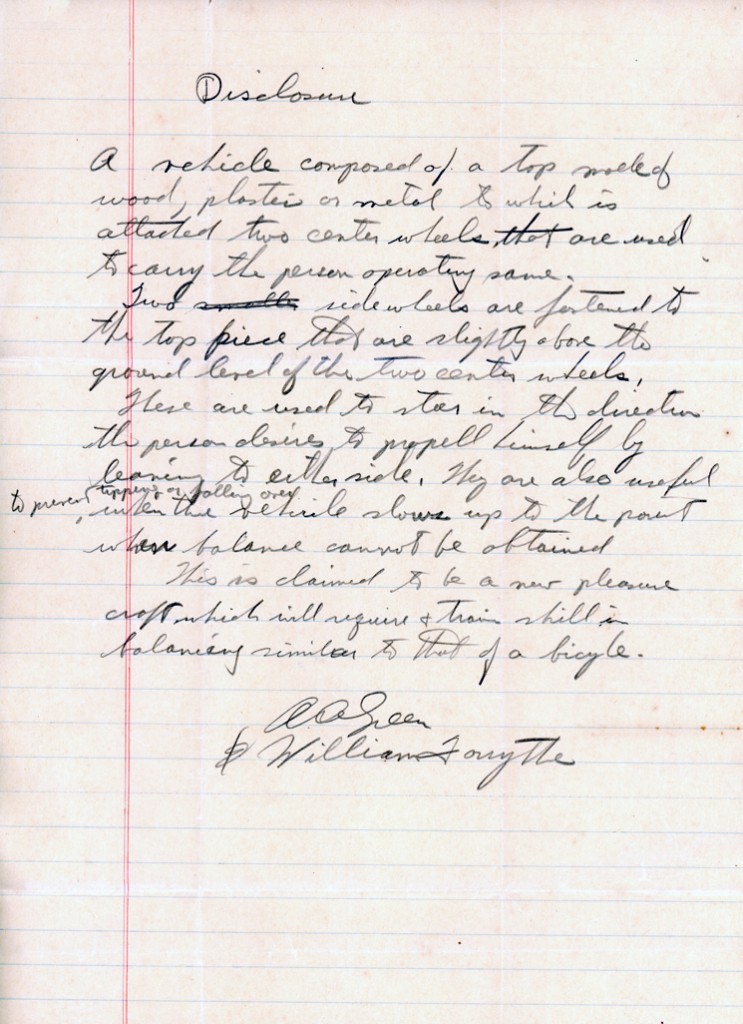 Disclosure
A vehicle composed of a top made of
wood, plastic or metal to which is
attached two center wheels that are used
to carry the person operating same.
Two side wheels are fastened to
the top piece that are slightly above the
ground level of the two center wheels.
These are used to steer in the direction
the person desires to propell himself by
leaning to either side. They are also useful
to prevent tipping or falling over
when the vehicle slows up to the point
when balance cannot be obtained
This is claimed to be a new pleasure
craft which will require & train skill in
balancing similar to that of a bicycle.
A A Green
& William Forsythe